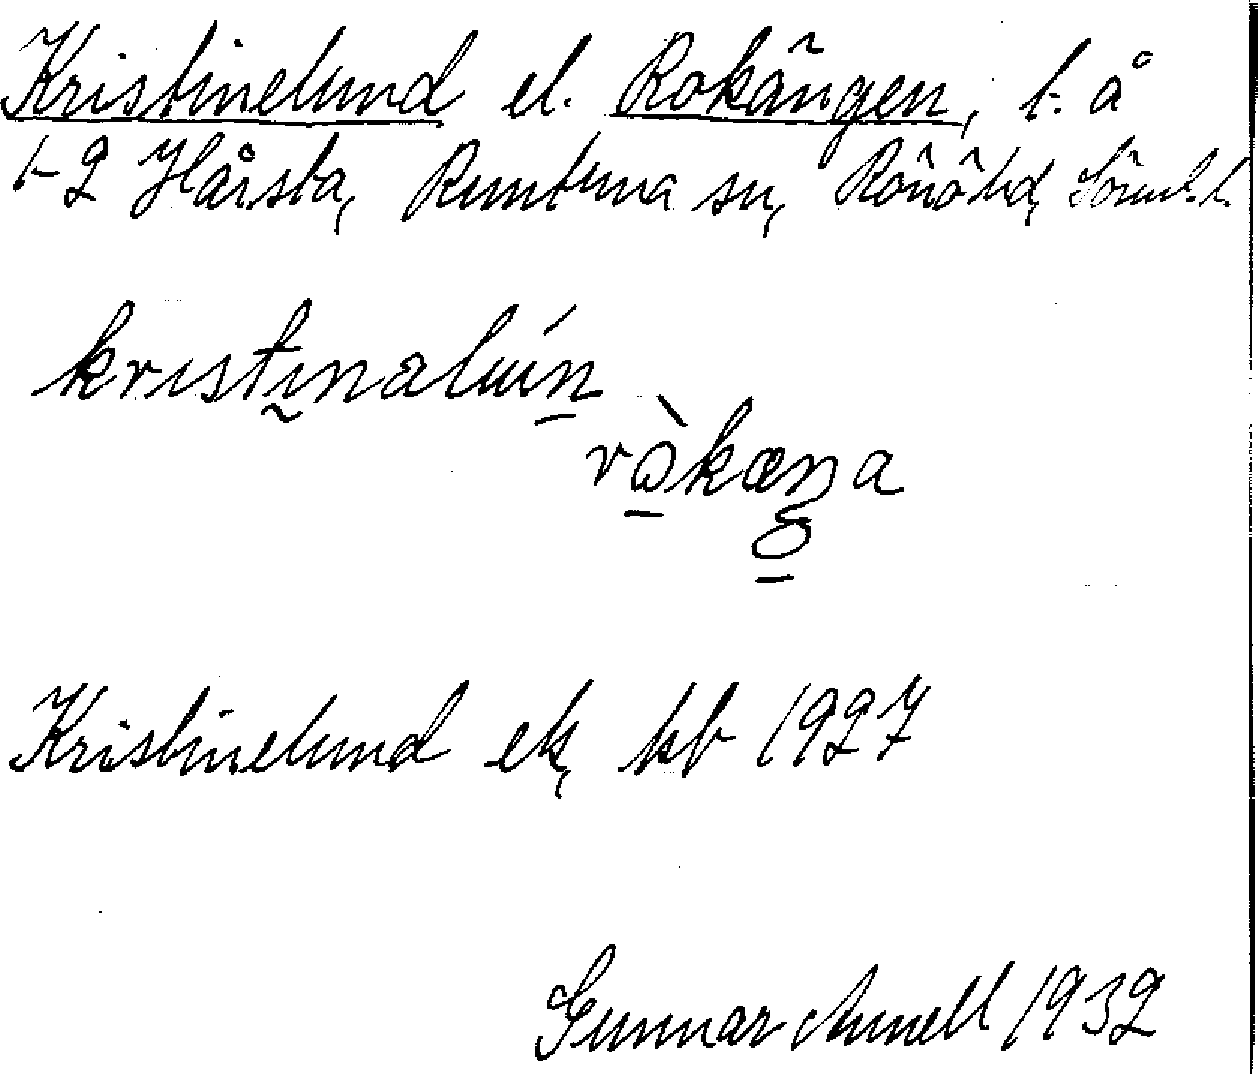 Kristinelund el. Rokängen, t. å
1-2 Hårsta, Runtuna sn, Rönö hd, Söml. l.
kristinaluín
ròkæŋa
Kristinelund ek, kb 1927
Gunnar Annell 1932